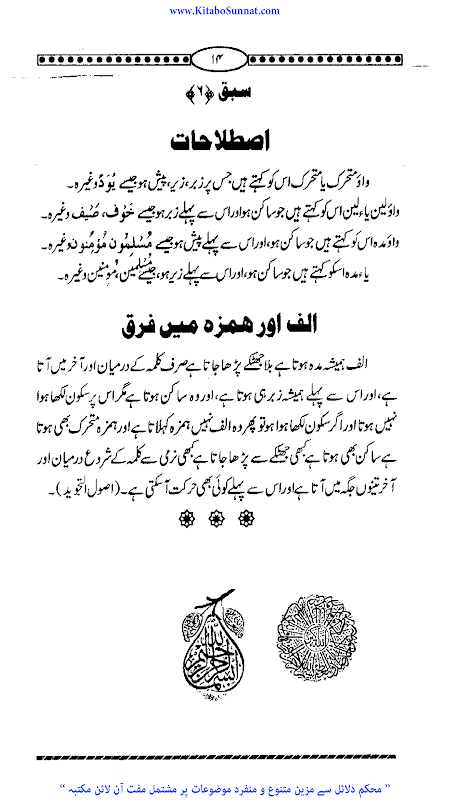 www.KitaboSunnat.com
۱۴
سبق ﴿۶﴾
اصطلاحات
واؤ متحرک یا متحرک اس کو کہتے ہیں جس پر زبر، زیر، پیش ہو جیسے یُوَدُّ وغیرہ۔
واؤ لین یاء لین اس کو کہتے ہیں جو ساکن ہو اور اس سے پہلے زبر ہو جیسے خَوْف، صَیْف وغیرہ۔
واؤ مدہ اس کو کہتے ہیں جو ساکن ہو، اور اس سے پہلے پیش ہو جیسے مُسْلِمُون مُؤْمِنُون وغیرہ۔
یاء مدہ اسکو کہتے ہیں جو ساکن ہو، اور اس سے پہلے زیر ہو، جیسے مُسْلِمین، مُومنین وغیرہ۔
الف اور ہمزہ میں فرق
الف ہمیشہ مدہ ہوتا ہے بلا جھٹکے پڑھا جاتا ہے صرف کلمہ کے درمیان اور آخر میں آتا
ہے، اور اس سے پہلے ہمیشہ زبر ہی ہوتا ہے، اور وہ ساکن ہوتا ہے مگر اس پر سکون لکھا ہوا
نہیں ہوتا اور اگر سکون لکھا ہوا ہو تو پھر وہ الف نہیں ہمزہ کہلاتا ہے اور ہمزہ متحرک بھی ہوتا
ہے ساکن بھی ہوتا ہے کبھی جھٹکے سے پڑھا جاتا ہے کبھی نرمی سے کلمہ کے شروع درمیان اور
آخر تینوں جگہ میں آتا ہے اور اس سے پہلے کوئی بھی حرکت آسکتی ہے۔ (اصول التجوید)۔
” محکم دلائل سے مزین متنوع و منفرد موضوعات پر مشتمل مفت آن لائن مکتبہ “